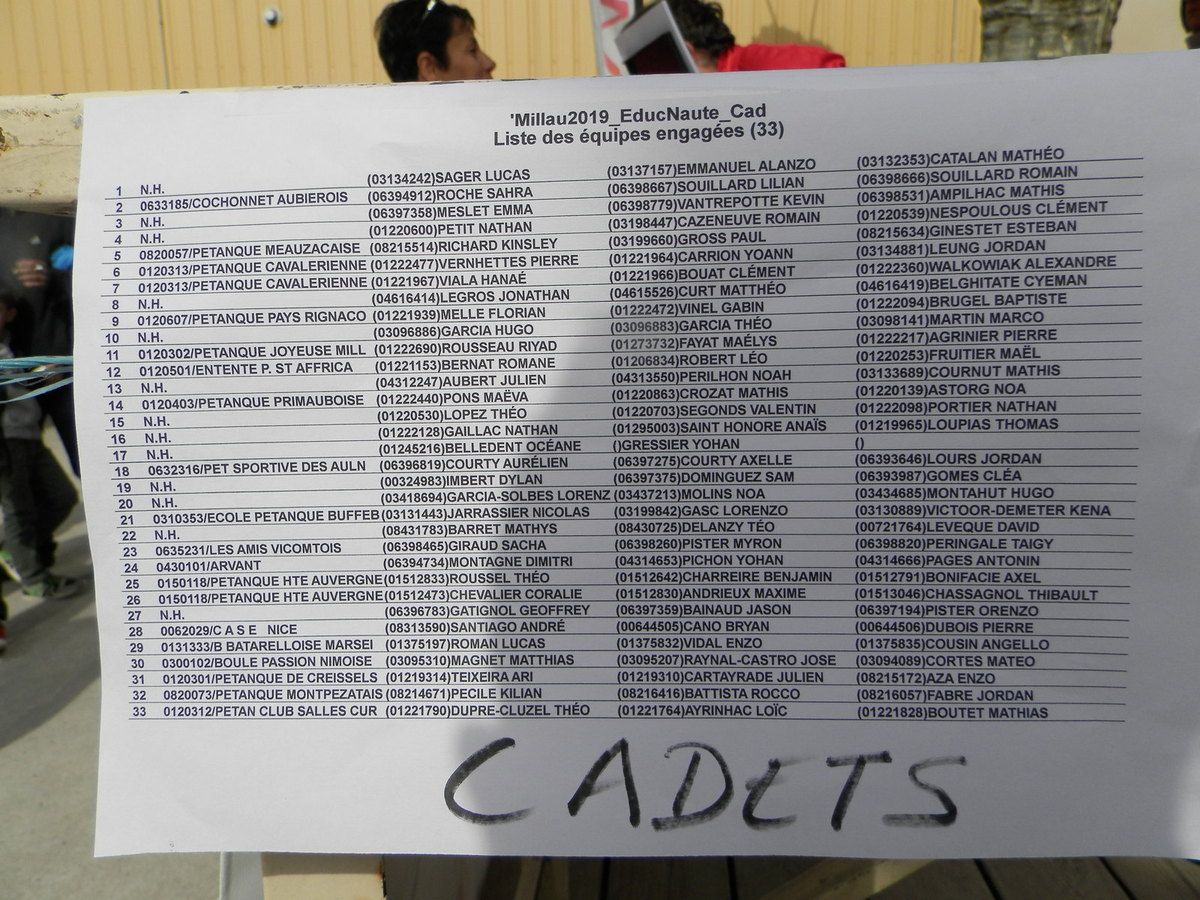 'Millau2019_EducNaute_Cad
Liste des équipes engagées (33)
1 N.H. (03134242)SAGER LUCAS (03137157)EMMANUEL ALANZO (03132353)CATALAN MATHÉO
2 0633185/COCHONNET AUBIEROIS (06394912)ROCHE SAHRA (06398667)SOUILLARD LILIAN (06398666)SOUILLARD ROMAIN
3 N.H. (06397358)MESLET EMMA (06398779)VANTREPOTTE KEVIN (06398531)AMPILHAC MATHIS
4 N.H. (01220600)PETIT NATHAN (03198447)CAZENEUVE ROMAIN (01220539)NESPOULOUS CLÉMENT
5 0820057/PETANQUE MEAUZACAISE (08215514)RICHARD KINSLEY (03199660)GROSS PAUL (08215634)GINESTET ESTEBAN
6 0120313/PETANQUE CAVALERIENNE (01222477)VERNHETTES PIERRE (01221964)CARRION YOANN (03134881)LEUNG JORDAN
7 0120313/PETANQUE CAVALERIENNE (01221967)VIALA HANAÉ (01221966)BOUAT CLÉMENT (01222360)WALKOWIAK ALEXANDRE
8 N.H. (04616414)LEGROS JONATHAN (04615526)CURT MATTHÉO (04616419)BELGHITATE CYEMAN
9 0120607/PETANQUE PAYS RIGNACO (01221939)MELLE FLORIAN (01222472)VINEL GABIN (01222094)BRUGEL BAPTISTE
10 N.H. (03096886)GARCIA HUGO (03096883)GARCIA THÉO (03098141)MARTIN MARCO
11 0120302/PETANQUE JOYEUSE MILL (01222690)ROUSSEAU RIYAD (01273732)FAYAT MAÉLYS (01222217)AGRINIER PIERRE
12 0120501/ENTENTE P. ST AFFRICA (01221153)BERNAT ROMANE (01206834)ROBERT LÉO (01220253)FRUITIER MAËL
13 N.H. (04312247)AUBERT JULIEN (04313550)PERILHON NOAH (03133689)COURNUT MATHIS
14 0120403/PETANQUE PRIMAUBOISE (01222440)PONS MAËVA (01220863)CROZAT MATHIS (01220139)ASTORG NOA
15 N.H. (01220530)LOPEZ THÉO (01220703)SEGONDS VALENTIN (01222098)PORTIER NATHAN
16 N.H. (01222128)GAILLAC NATHAN (01295003)SAINT HONORE ANAÏS (01219965)LOUPIAS THOMAS
17 N.H. (01245216)BELLEDENT OCÉANE ()GRESSIER YOHAN ()
18 0632316/PET SPORTIVE DES AULN (06396819)COURTY AURÉLIEN (06397275)COURTY AXELLE (06393646)LOURS JORDAN
19 N.H. (00324983)IMBERT DYLAN (06397375)DOMINGUEZ SAM (06393987)GOMES CLÉA
20 N.H. (03418694)GARCIA-SOLBES LORENZ (03437213)MOLINS NOA (03434685)MONTAHUT HUGO
21 0310353/ECOLE PETANQUE BUFFEB (03131443)JARRASSIER NICOLAS (03199842)GASC LORENZO (03130889)VICTOOR-DEMETER KENA
22 N.H. (08431783)BARRET MATHYS (08430725)DELANZY TÉO (00721764)LEVEQUE DAVID
23 0635231/LES AMIS VICOMTOIS (06398465)GIRAUD SACHA (06398260)PISTER MYRON (06398820)PERINGALE TAIGY
24 0430101/ARVANT (06394734)MONTAGNE DIMITRI (04314653)PICHON YOHAN (04314666)PAGES ANTONIN
25 0150118/PETANQUE HTE AUVERGNE (01512833)ROUSSEL THÉO (01512642)CHARREIRE BENJAMIN (01512791)BONIFACIE AXEL
26 0150118/PETANQUE HTE AUVERGNE (01512473)CHEVALIER CORALIE (01512830)ANDRIEUX MAXIME (01513046)CHASSAGNOL THIBAULT
27 N.H. (06396783)GATIGNOL GEOFFREY (06397359)BAINAUD JASON (06397194)PISTER ORENZO
28 0062029/C A S E NICE (08313590)SANTIAGO ANDRÉ (00644505)CANO BRYAN (00644506)DUBOIS PIERRE
29 0131333/B BATARELLOISE MARSEI (01375197)ROMAN LUCAS (01375832)VIDAL ENZO (01375835)COUSIN ANGELLO
30 0300102/BOULE PASSION NIMOISE (03095310)MAGNET MATTHIAS (03095207)RAYNAL-CASTRO JOSE (03094089)CORTES MATEO
31 0120301/PETANQUE DE CREISSELS (01219314)TEIXEIRA ARI (01219310)CARTAYRADE JULIEN (08215172)AZA ENZO
32 0820073/PETANQUE MONTPEZATAIS (08214671)PECILE KILIAN (08216416)BATTISTA ROCCO (08216057)FABRE JORDAN
33 0120312/PETAN CLUB SALLES CUR (01221790)DUPRE-CLUZEL THÉO (01221764)AYRINHAC LOÏC (01221828)BOUTET MATHIAS
CADETS